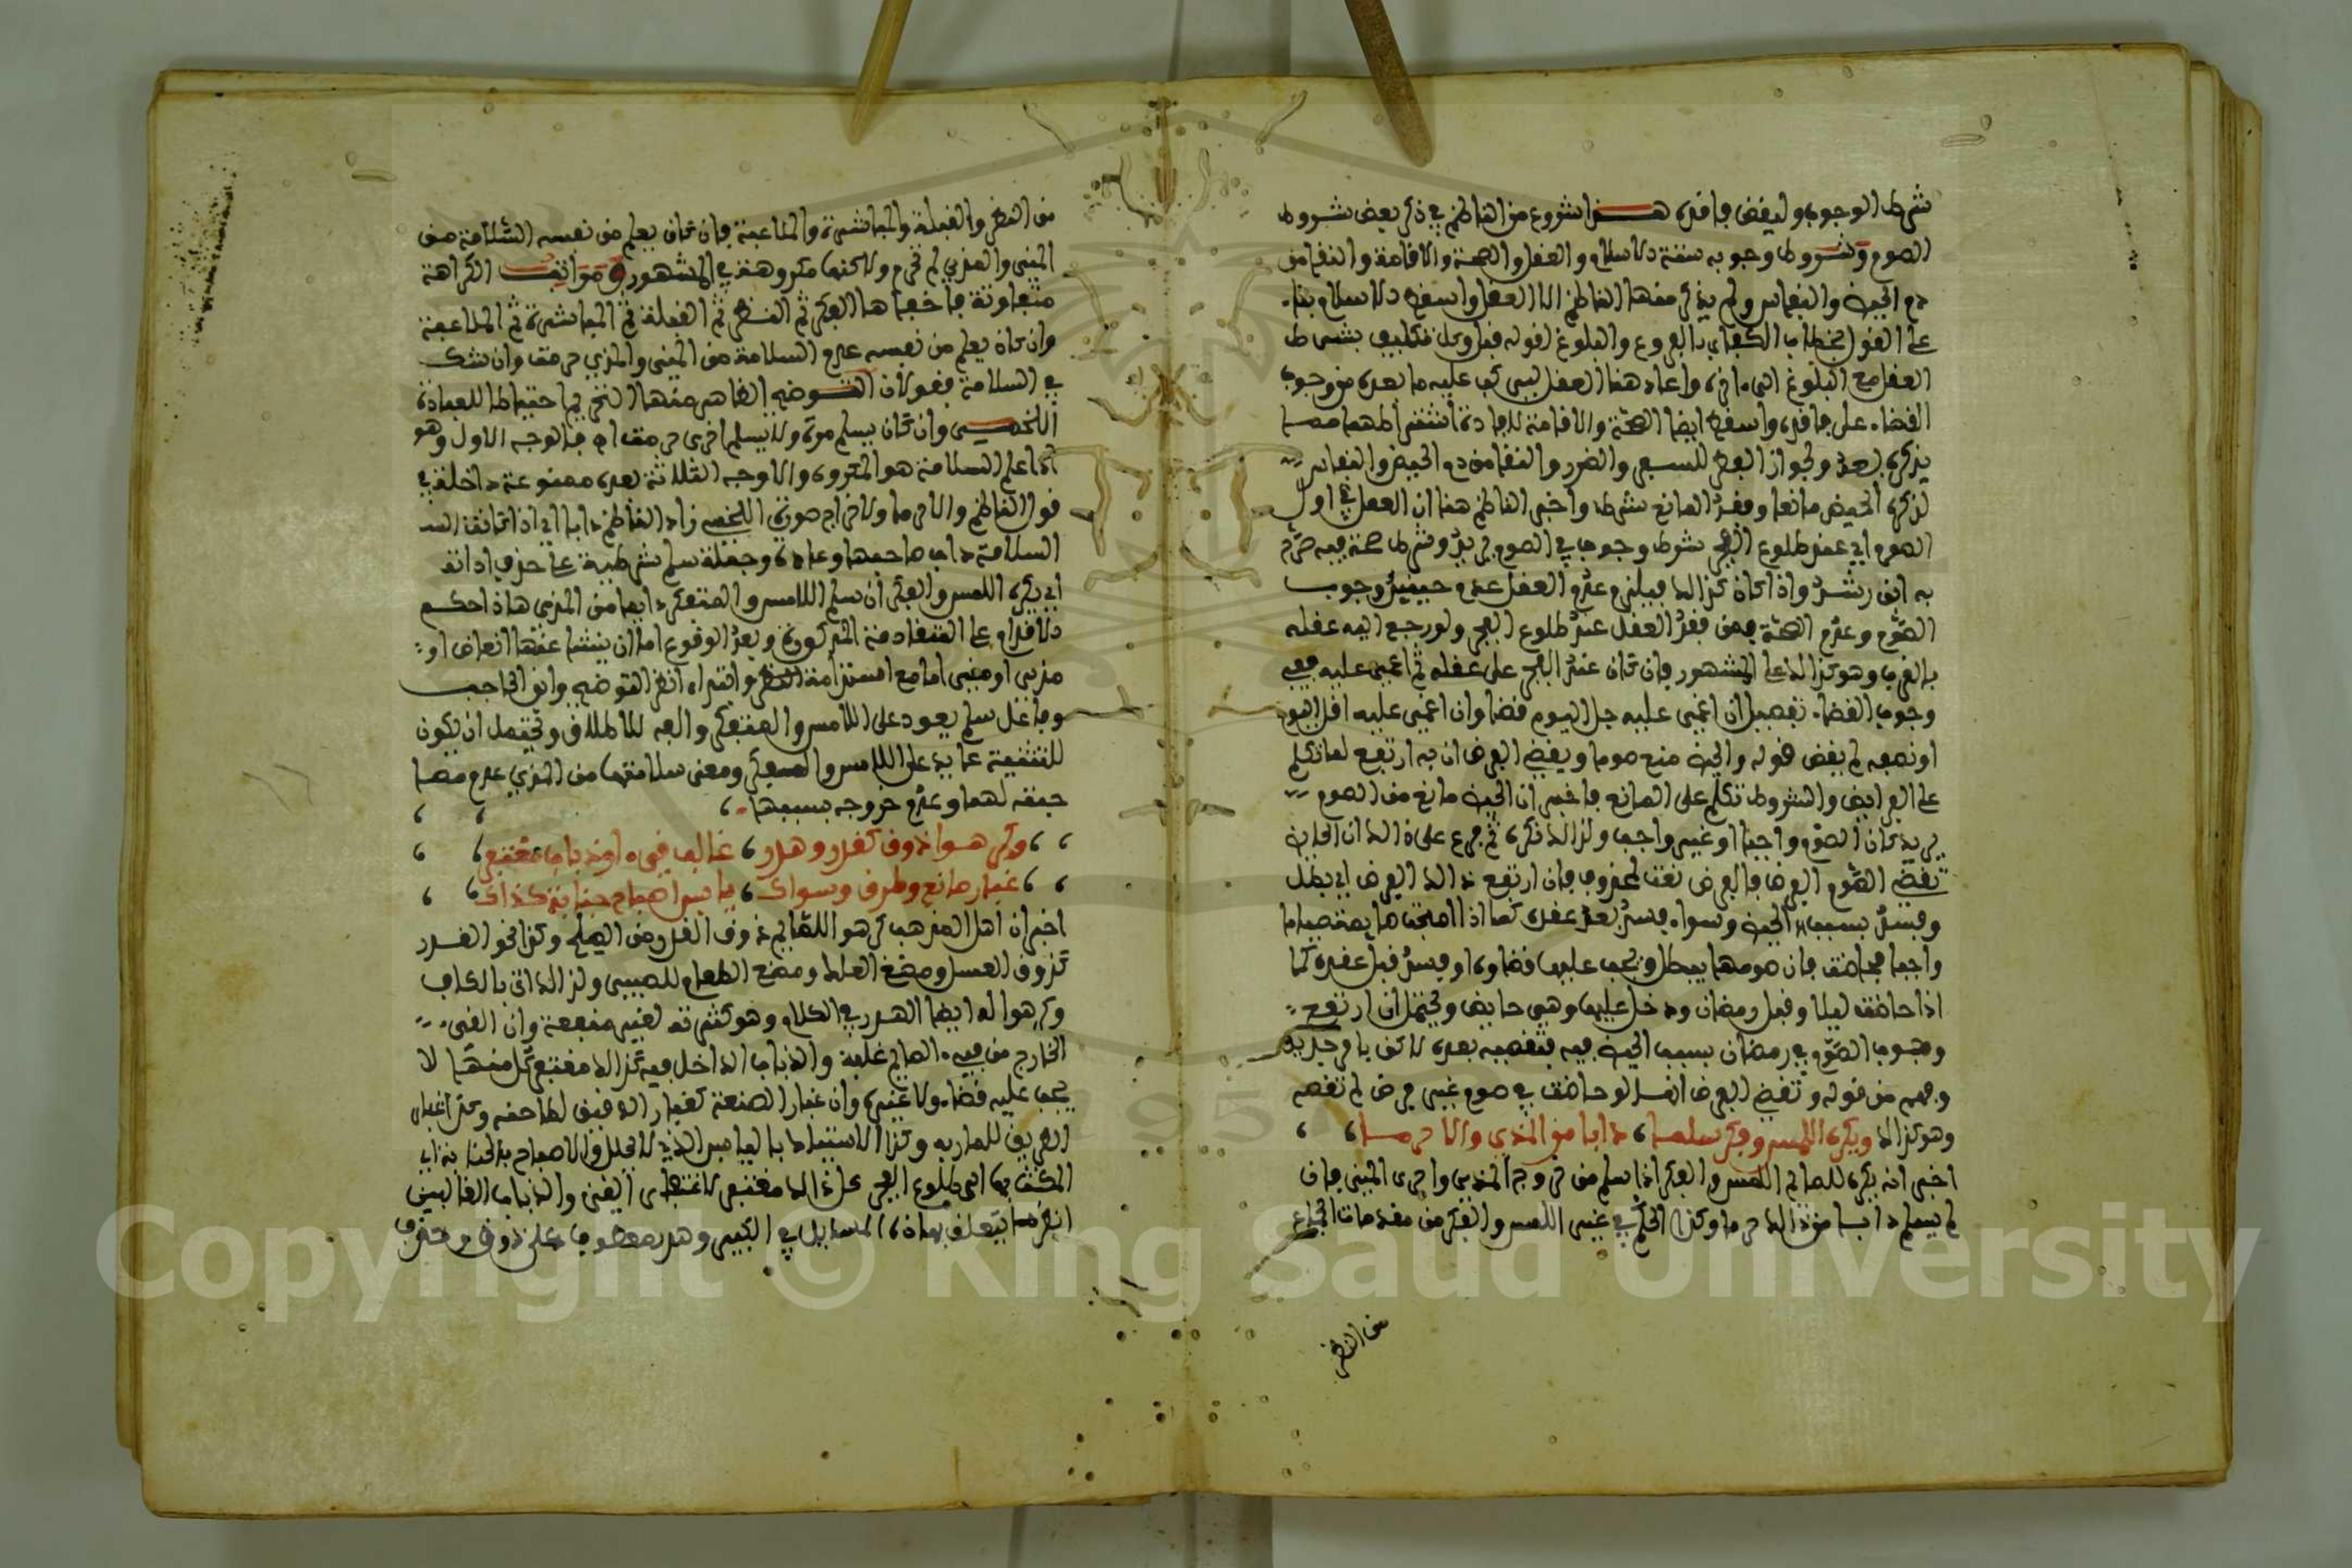 شرط الوجوب وليقض فاقده هذا شروع من الناظم في ذكر بعض شروط
الصوم وشروط وجوبه ستة الاسلام والعقل والصحة والاقامة والنقا من
دم الحيض والنفاس ولم يذكر منها الناظم الا العقل واسقط الاسلام بناء
على القول بخطاب الكفار بالفروع والبلوغ لقوله قبل وكل تكليف بشرط
العقل مع البلوغ الى اخره واعاد هنا العقل ليرتب عليه ما بعده من وجوب
القضاء على فاقده واسقط ايضا الصحة والاقامة
يذكره بعد ولجواز الفطر للسفر والضرر والنقا من دم الحيض والنفاس
لذكره الحيض مانعا وفقد المانع شرط واخبر الناظم هنا ان العقل في اول
الصوم اي عند طلوع الفجر شرط وجوب في الصوم يريد وشرط صحة فيه صرح
به ابن رشد واذا كان كذلك فيلزم عدم العقل عدم حينئذ وجوب
الصوم وعدم الصحة فمن فقد العقل عند طلوع الفجر ولو رجع اليه عقله
بالقرب وهو كذلك على المشهور فان كان عند الفجر على عقله ثم اغمي عليه ففي
وجوب القضاء تفصيل ان اغمي عليه جل اليوم قضا وان اغمي عليه اقل اليوم
او نصفه لم يقض قوله والحيض منع صوما ويقضي الفرض ان به ارتفع لما تكلم
على الفرايض والشروط تكلم على المانع فاخبر ان الحيض مانع من الصوم
يريد كان الصوم واجبا او غير واجب ولذلك نكره ثم فرع على ذلك ان الحايض
تقضي الصوم الفرض فالفرض نعت لمحذوف فان ارتفع ذلك الفرض اي بطل
وفسد بسبب الحيض وسواء فسد بعد عقده كما اذا اصبحت صايمة صياما
واجبا فحاضت فان صومها يبطل ويجب عليها قضاؤه او فسد قبل عقده كما
اذا حاضت ليلا وقبل رمضان ودخل عليها وهي حايض ويحتمل ان ارتفع
وجوب الصوم في رمضان بسبب الحيض فيه فتقضيه بعده لاكن بامر جديد
وفهم من قوله وتقضي الفرض انها لو حاضت في صوم غير فرض لم تقضه
وهو كذلك ويكره اللمس وفكر سلما، دابا من المذي والا حرما،
اخبر انه يكره للصايم اللمس والفكر اذا سلم من خروج المذي واحرى المني فان
لم يسلم دابا من ذلك حرما وكذا الحكم في غير اللمس والفكر من مقدمات الجماع
من النظر
من النظر والقبلة والمباشرة والملاعبة فان كان يعلم من نفسه السلامة من
المني والمذي لم تحرم ولاكنها مكروهة في المشهور ومراتب الكراهة
متفاوتة فاخفها الفكر ثم النظر ثم القبلة ثم المباشرة ثم الملاعبة
وان كان يعلم من نفسه عدم السلامة من المني والمذي حرمت وان شك
في السلامة فقولان التوضيح الظاهر منهما التحريم احتياطا للعبادة
اللخمي وان كان يسلم مرة ولا يسلم اخرى حرمت اه فالوجه الاول وهو
اذا علم السلامة هو المكروه والاوجه الثلاثة بعده ممنوعة داخلة في
قول الناظم والا حرما ولا حرام صورة اللخمي زاد الناظم دابا اي اذا كانت
السلامة داب صاحبها وعادته وجملة سلم شرطية على حذف اداة
اي يكره اللمس والفكر ان سلم اللامس والمتفكر دايما من المذي هاذا حكم
الاقدام على المقدمة المذكورة وبعد الوقوع اما ان ينشا عنها انعاظ او
مذي او مني اما مع استدامة النظر وانظر التوضيح وابن الحاجب
وفاعل سلم يعود على اللامس والمتفكر والفه للاطلاق ويحتمل ان يكون
للتثنية عايد على اللامس والمتفكر ومعنى سلامتهما من المذي عدم مصا
حبته لهما وعدم خروجه بسببهما
وكرهوا ذوق كقدر وهذر، غالب قيء او ذباب مغتفر،
غبار صانع وطرق وسواك، يابس اصباح جنابة كذاك،
اخبر ان اهل المذهب كرهوا للصايم ذوق القدر من الملح وكذا نحو القدر
كذوق العسل ومضغ العلك ومضغ الطعام للصبي ولذلك اتى بالكاف
وكرهوا له ايضا الهذر في الكلام وهو كثرته لغير منفعة وان القيء
الخارج من فيه الصايم غلبة والذباب الداخل فيه كذلك مغتفر كل منهما لا
يجب عليه قضاء ولا غيره وان غبار الصنعة كغبار الدقيق لطاحنه وكذا غبار
الطريق للمار به وكذا الاستياك باليابس الذي لا يتحلل والاصباح بالجنابة اي
المكث بها الى طلوع الفجر كل ذلك مغتفر لاغتفار القيء والذباب الغالبين
انظر ما يتعلق بهاذه المسايل في الكبير وهذر معطوف على ذوق وحذف